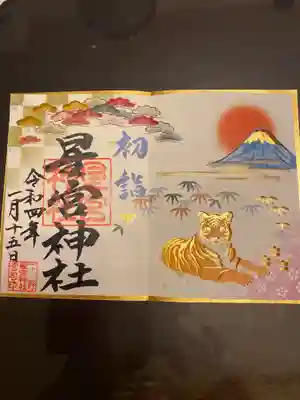 初詣
星宮神社
令和四年
一月十五日